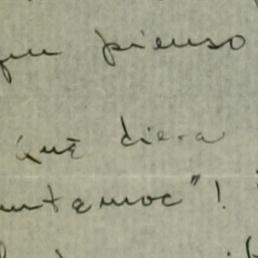 que pienso
qué diera
untemoc"!